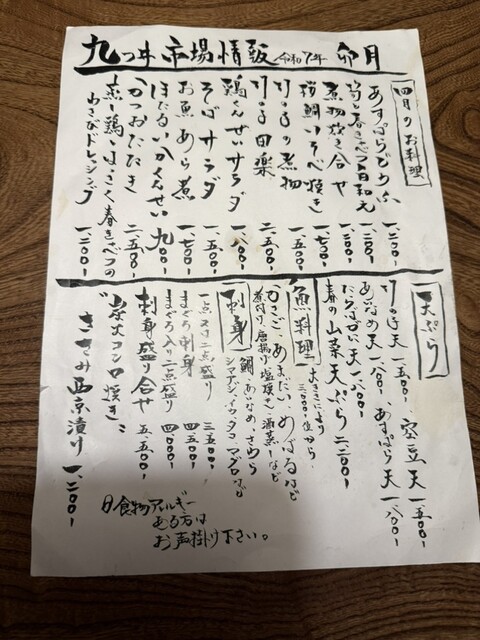 九つ井 市場情報 令和7年 卯月
四月のお料理
あすぱらどうふ 一、二〇〇-
筍と春きゃべつ
煮物炊き合せ
桜鯛いそべ焼き 一、七〇〇-
竹の子の煮物 一、五〇〇-
竹の子田楽 二、五〇〇-
鶏くんせいサラダ 一、八〇〇-
そばサラダ 一、五〇〇-
お魚あら煮 一、七〇〇-
ほたるいかくんせい 九〇〇-
かつおたたき 二、五〇〇-
蒸し鶏 春きゃべつの
わさびドレッシング 一、二〇〇-
天ぷら
竹の子天 一、五〇〇- 空豆天 一、五〇〇-
あいなめ天 一、八〇〇- あすぱら天 一、八〇〇-
天 一、八〇〇-
春の山菜天ぷら 二、二〇〇-
魚料理 大きさにより
三、〇〇〇-位から
かさご、あまだい、めばるなど
煮付け、唐揚げ、塩焼き、酒蒸しなど
刺身 鯛、あいなめ、さわら
シマアジ、イカ、タコ、マグロなど
一点 二点盛り 三、五〇〇-
まぐろ刺身 四、五〇〇-
まぐろ入り二点盛り 四、〇〇〇-
刺身盛り合せ 五、五〇〇-
コンロ焼き
ささみ西京漬け 一、二〇〇-
食物アレルギー
ある方は
お声掛け下さい。